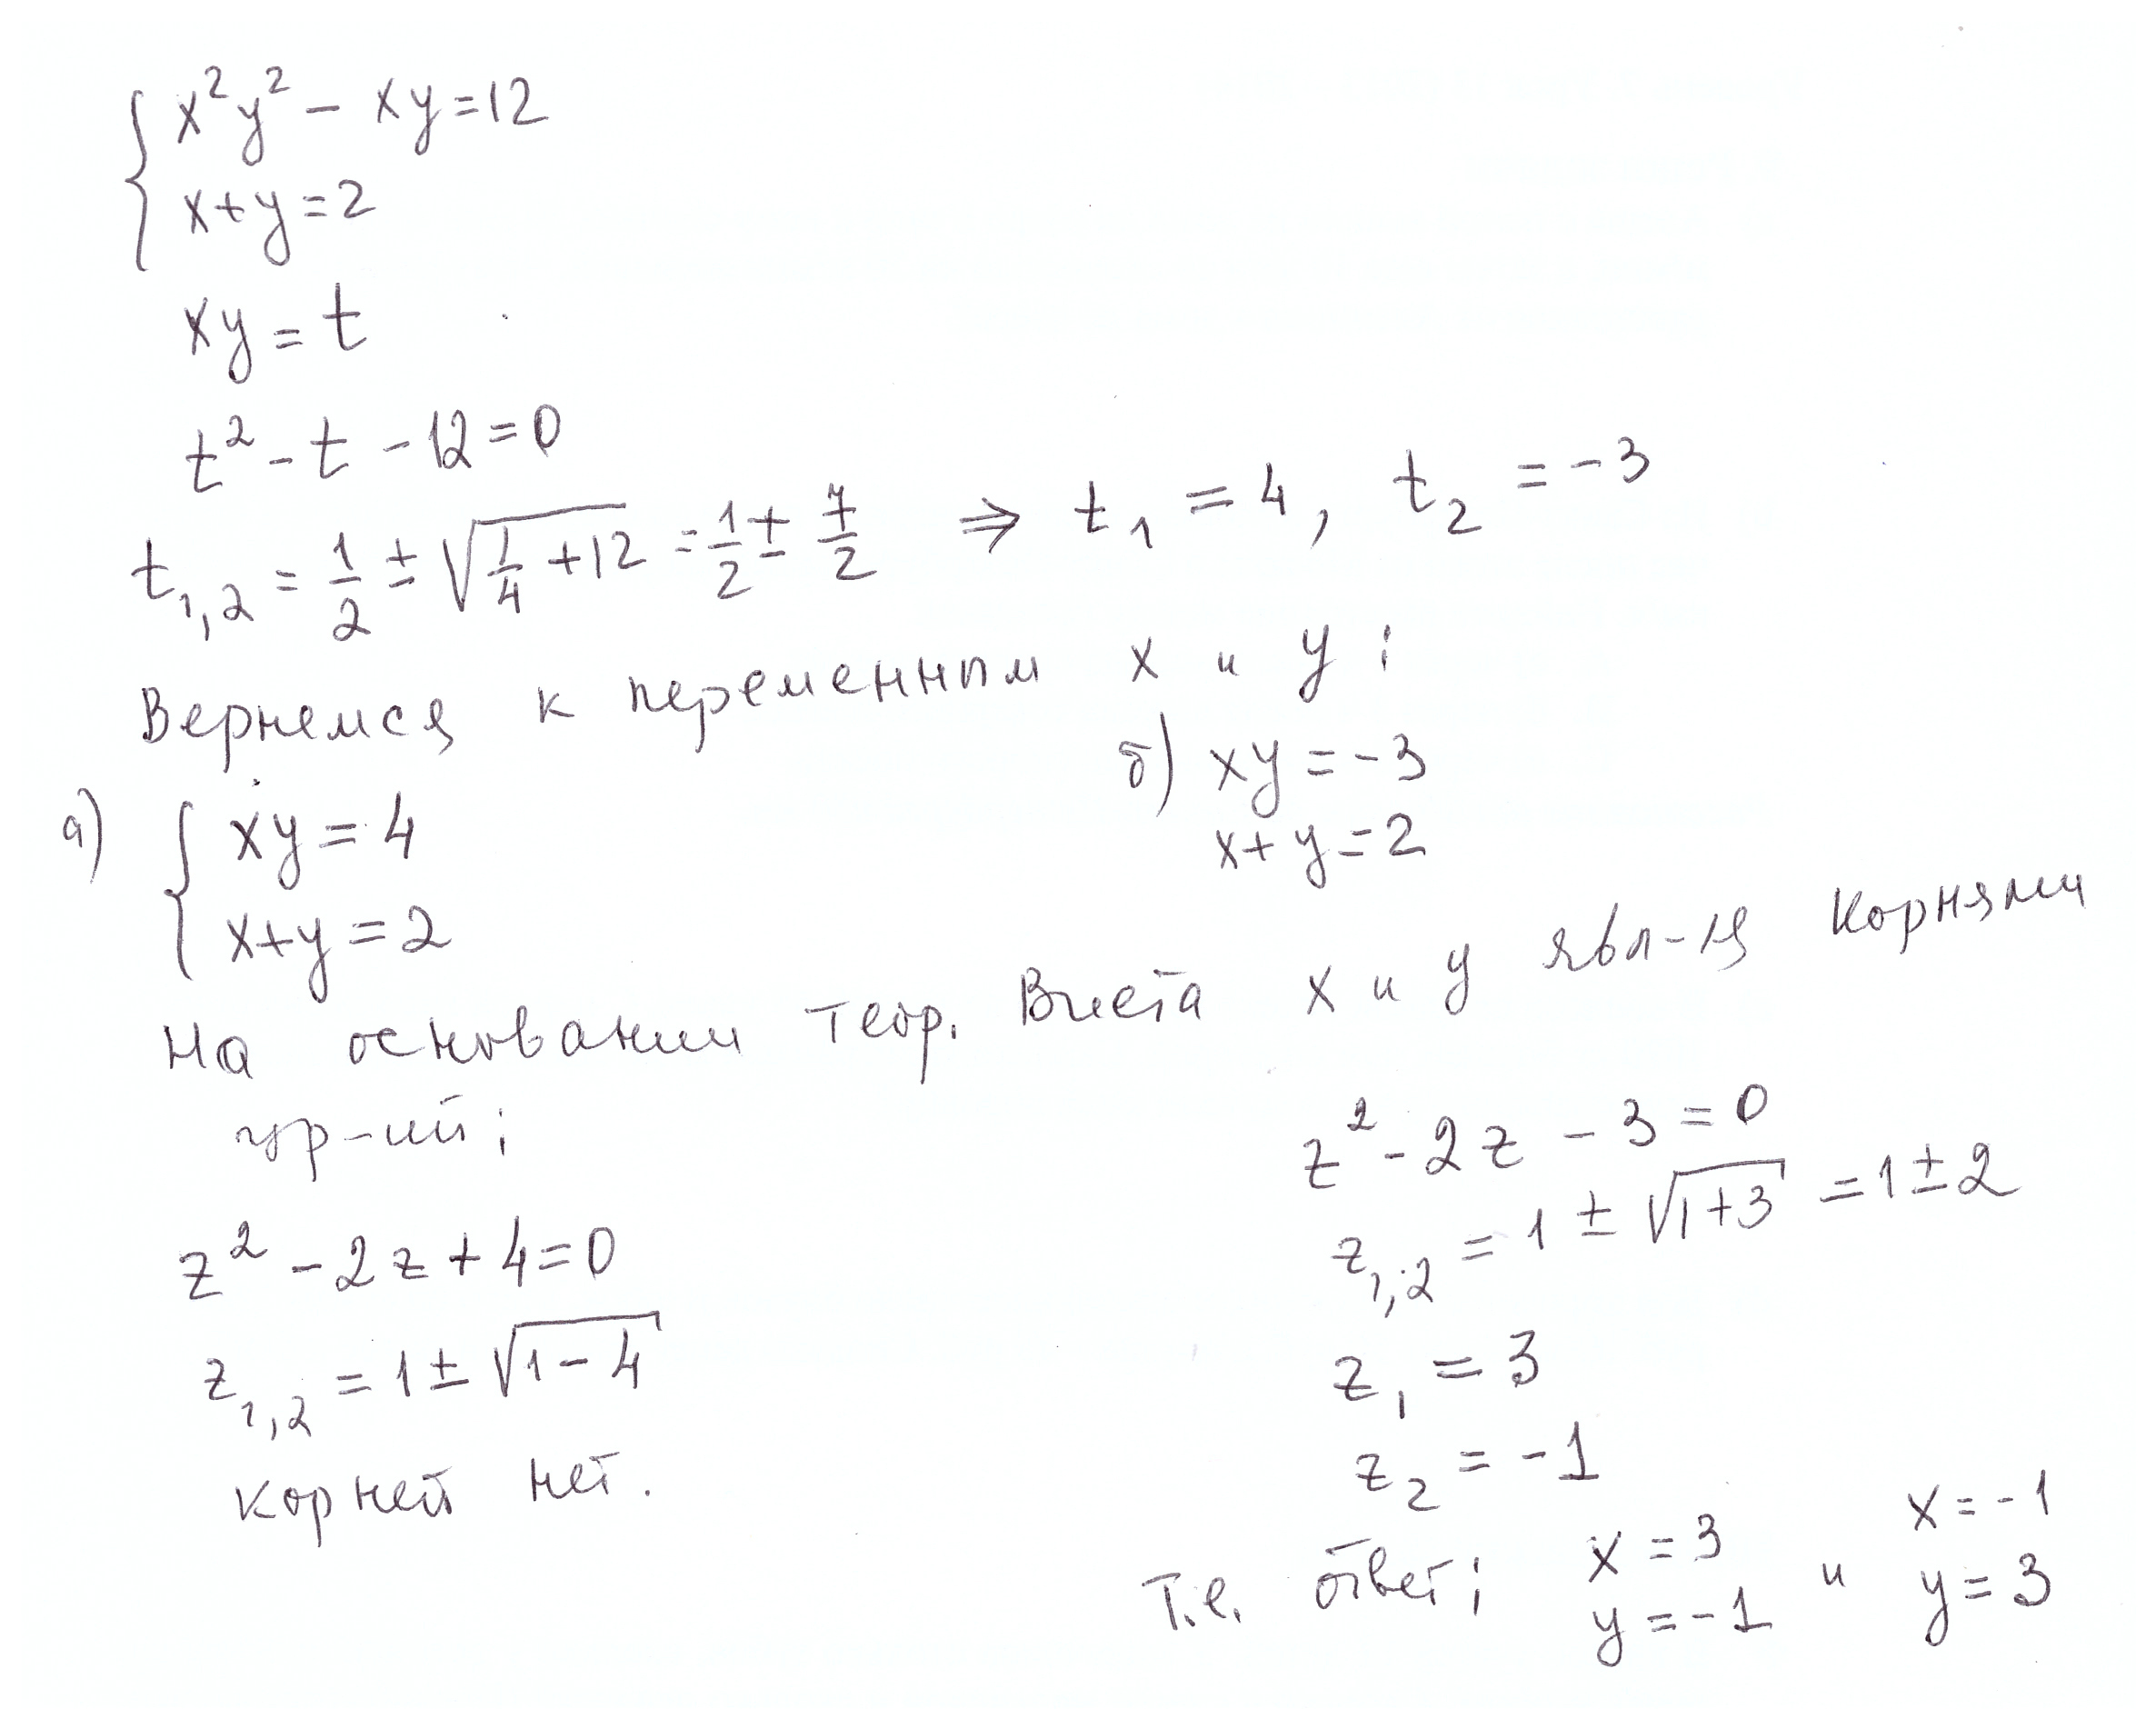 x²y² - xy = 12
x + y = 2
xy = t
t² - t - 12 = 0
t₁,₂ = 1/2 ± √(1/4 + 12) = 1/2 ± 7/2 ⇒ t₁ = 4, t₂ = -3
Вернемся к переменным x и y:
а) xy = 4
x + y = 2
б) xy = -3
x + y = 2
На основании теор. Виета x и y явл-ся корнями
ур-ий:
z² - 2z + 4 = 0
z₁,₂ = 1 ± √(1 - 4)
корней нет.
z² - 2z - 3 = 0
z₁,₂ = 1 ± √(1+3) = 1 ± 2
z₁ = 3
z₂ = -1
Т.е. ответ: x = 3 y = -1 и x = -1 y = 3